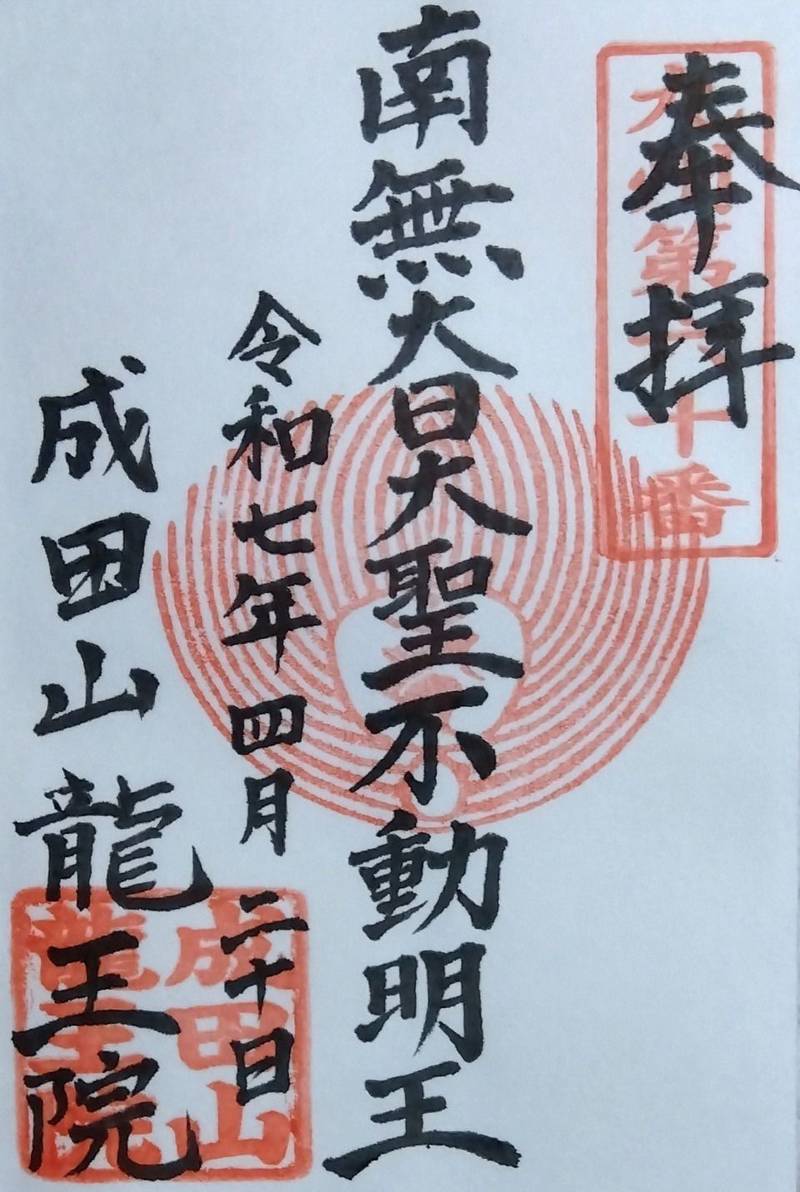 奉拝
第
十番
南無大日大聖不動明王
令和七年四月二十日
成田山龍王院
成田山
龍王院